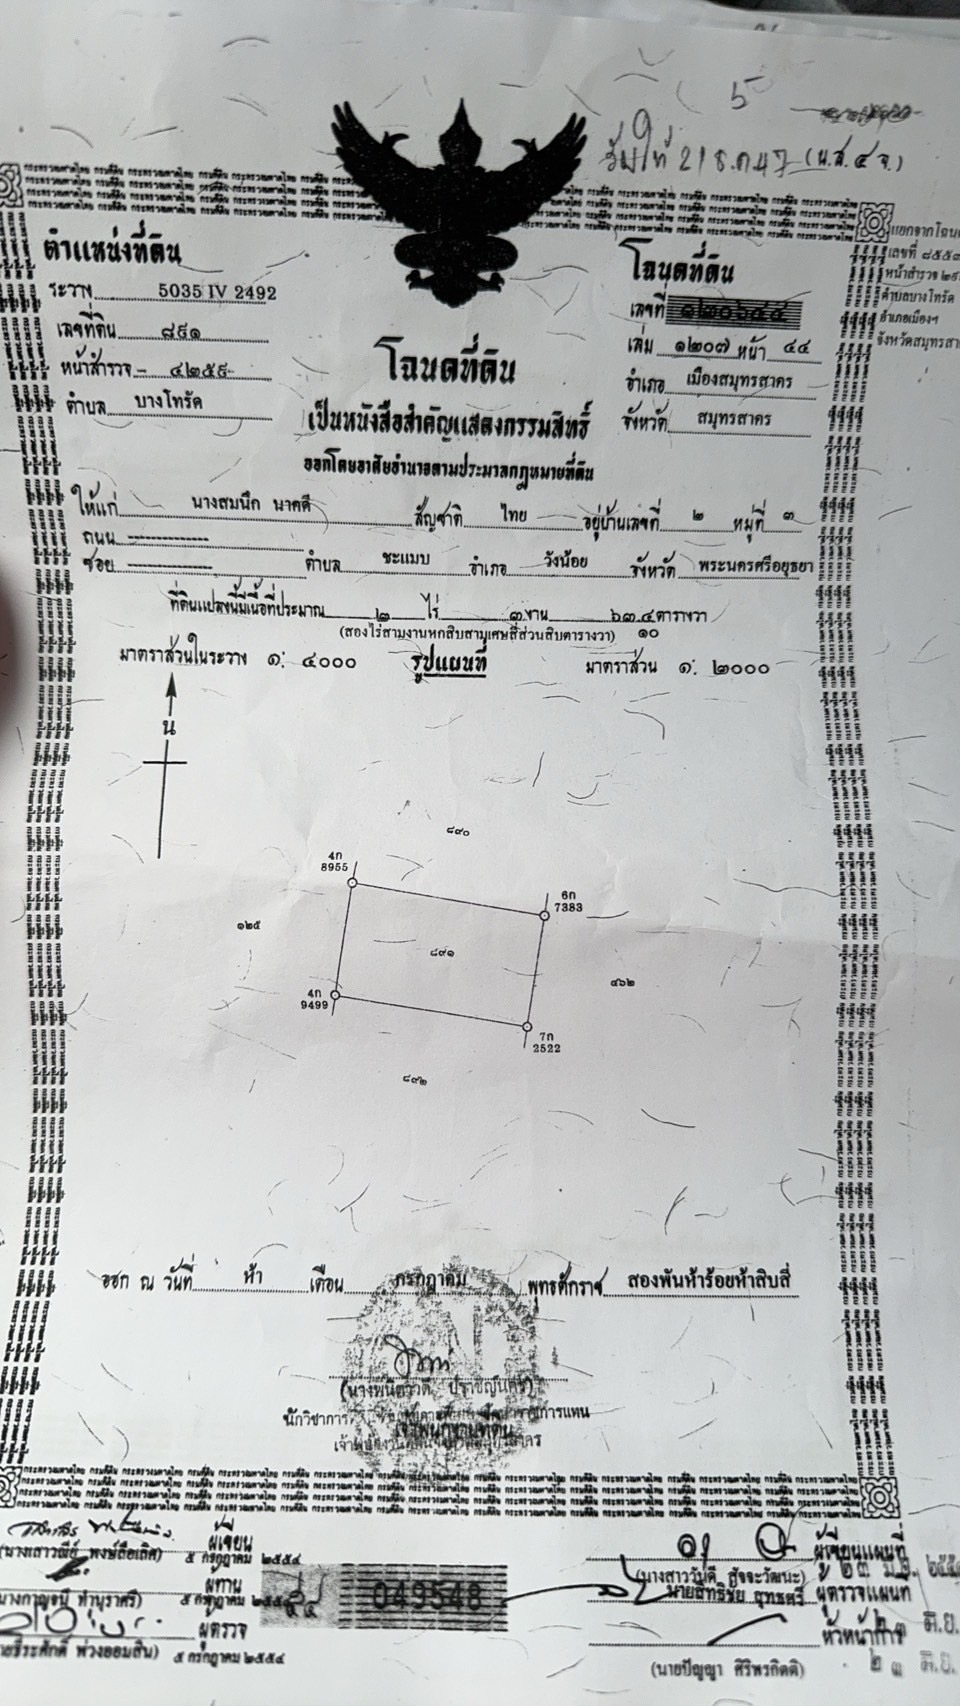 วันที่ 21 ธ.ค 47 (น.ส.๔ จ.)
แยกจากโฉนด
เลขที่ ๘๕๕๙
หน้าสำรวจ ๒๙
ตำบลบางโทรัด
อำเภอเมืองฯ
จังหวัดสมุทรสา
ตำแหน่งที่ดิน
ระวาง 5035 IV 2492
เลขที่ดิน ๘๙๑
หน้าสำรวจ ๔๒๕๙
ตำบล บางโทรัด
โฉนดที่ดิน
เลขที่ ๑๒๐๖๔๔
เล่ม ๑๒๐๗ หน้า ๔๔
อำเภอ เมืองสมุทรสาคร
จังหวัด สมุทรสาคร
โฉนดที่ดิน
เป็นหนังสือสำคัญแสดงกรรมสิทธิ์
ออกโดยอาศัยอำนาจตามประมวลกฎหมายที่ดิน
ให้แก่ นางสมนึก นาคดี สัญชาติ ไทย อยู่บ้านเลขที่ ๒ หมู่ที่ ๓
ถนน --------------
ซอย -------------- ตำบล ชะแมบ อำเภอ วังน้อย จังหวัด พระนครศรีอยุธยา
ที่ดินแปลงนี้มีเนื้อที่ประมาณ ๒ ไร่ ๓ งาน ๖๓.๔ ตารางวา
(สองไร่สามงานหกสิบสามเศษสี่ส่วนสิบตารางวา) ๑๐
มาตราส่วนในระวาง ๑: ๔๐๐๐ รูปแผนที่ มาตราส่วน ๑: ๒๐๐๐
น
๘๙๐
4ก
8955
6ก
7383
๑๒๕
๘๙๑
๔๖๒
4ก
9499
7ก
2522
๘๙๒
ออก ณ วันที่ ห้า เดือน กรกฎาคม พุทธศักราช สองพันห้าร้อยห้าสิบสี่
นักวิชาการ
เจ้าพนักงานที่ดิน
ผู้เขียน
(นางเสาวณีย์ พงษ์ลือเลิศ) ๕ กรกฎาคม ๒๕๕๔
ผู้ทาน
๕ กรกฎาคม
ผู้ตรวจ
พ่วงออมสิน) ๕ กรกฎาคม ๒๕๕๔
049548
ผู้เขียนแผนที่
(นางสาววันดี สัจจะวัฒนะ)
ผู้ตรวจแผนที่
หัวหน้าการ
๒๓ มิ.ย.
(นายปัญญา ศิริพรกิตติ)